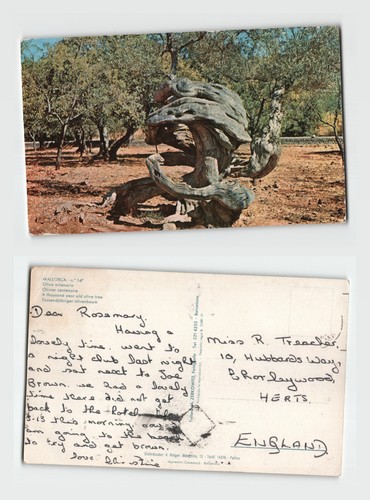 MALLORCA
Olivo milenario
Olivier centenaire
A thousand year old olive tree
Tausendjähriger olivenbaum
Dear Rosemary.
Having a
lovely time. went to
a night club last night
and sat next to Joe
Brown. we had a lovely
time there did not get
back to the hotel till
3-15 this morning
am going to the
to try and get brown.
love Christine
Miss R. Treacher
10, Hubbards Way,
Chorleywood,
HERTS.
ENGLAND